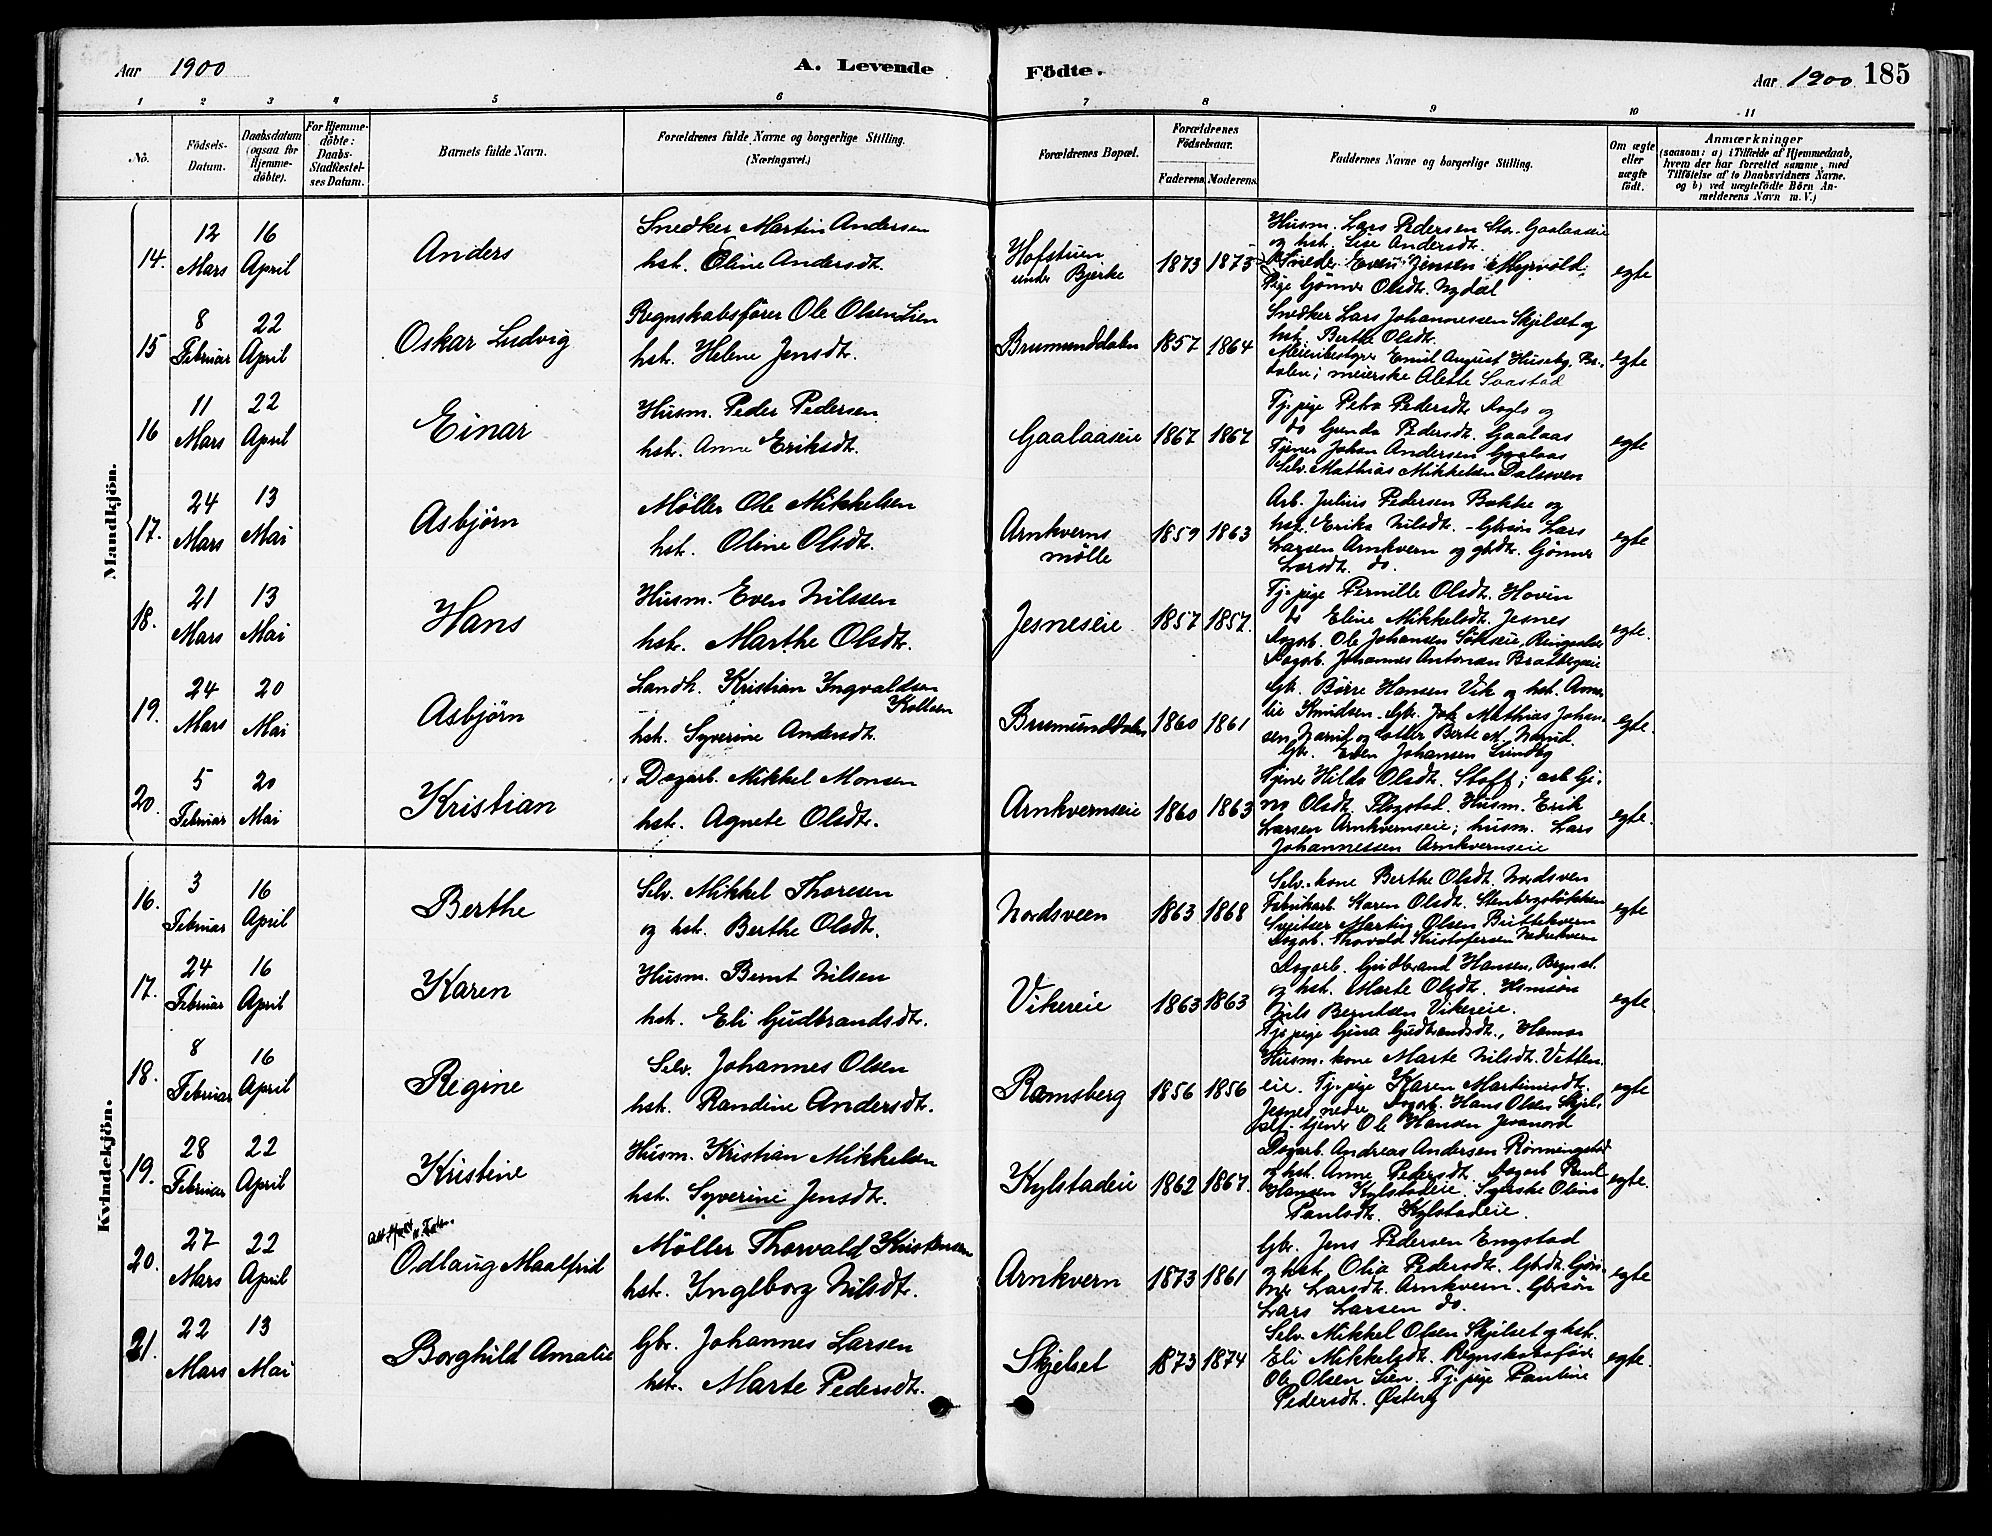 Aar 1900
A. Levende
Födte.
Aar 1900. 185
1 2 3 4 5 6 7 8 9 10 11
No.
Födsels-Datum.
Daabsdatum (ogsaa for Hjemme-döbte).
For Hjemme-döbte: Daabs-Stadfæstel-ses Datum.
Barnets fulde Navn.
Forældrenes fulde Navne og borgerlige Stilling. (Næringsvei.)
Forældrenes Bopæl.
Forældrenes Födselsaar.
Faderens. Moderens.
Faddernes Navne og borgerlige Stilling.
Om ægte eller uægte födt.
Anmærkninger
(saasom: a) i Tilfælde af Hjemmedaab, hvem der har forrettet samme, med Tilföielse af to Daabsvidners Navne. og b) ved uægtefödte Börn An-melderens Navn m. V.)
Mandkjön.
14. 12 Mars 16 April Anders
Snedker Martin Andersen
hst. Oline Andersdt.
Hofstuen under Bjerke 1873 1873
Husm. Lars Pedersen Sto. Gaalaaseie
og hst. Lise Andersdt.
Snedk. Even Jensen Myrvold;
Pige Gönner Olsdt. Nydal
egte
15 8 Februar 22 April Oskar Ludvig
Regnskabsförer Ole Olsen Lien
hst. Helene Jensdt.
Brumunddalen 1857 1864
Snedker Lars Johannessen Skjelset og
hst. Berthe Olsdt.
Meieribestyrer Emil August Huseby, Br.-
dalen; meierske Alette Svastad
egte
16 11 Mars 22 April Einar
Husm. Peder Pedersen
hst. Anne Eriksdt.
Gaalaaseie 1867 1867
Tj. pige Petra Pedersdt. Aagls og
do Gunda Pedersdt. Gaalaas
Tjener Johan Andersen Gaalaas
Selv. Mathias Mikkelsen Dalsveen
egte
17. 24 Mars 13 Mai Asbjörn
Møller Ole Mikkelsen
hst. Oline Olsdt.
Arnkverns mølle 1859 1863
Arb. Julius Pedersen Bakke og
hst. Erika Nilsdt. - Gbrsön Lars
Larsen Arnkvern og gbdt. Gönner
Larsdt. do.
egte
18. 21 Mars 13 Mai Hans
Husm. Even Nilssen
hst. Marthe Olsdt.
Jesneseie 1857 1857.
Tj. pige Pernille Olsdt. Hovin
do Eline Mikkelsdt. Jesnes
Dagarb. Ole Johansen Sökseie, Ringsaker
Dagarb. Johannes Antonsen Bratbergseie
egte.
19. 24 Mars 20 Mai Asbjörn
Landh. Kristian Ingvaldsen
Kolloen
hst. Syverine Andersdt.
Brumunddalen 1860 1861
Gbr. Börre Hansen Vik og hst. Ama-
lie Knudsen. Gbr. Joh. Mathias Johan-
sen Narud og datter Berte M. Narud.
Gbr. Even Johansen Lundby
egte.
20. 5 Februar 20 Mai Kristian
Dagarb. Mikkel Monsen
hst. Agnete Olsdt.
Arnkvernseie 1860 1863
Tjener Hilda Olsdt. Staff; arb. Gi-
na Olsdt. Flagstad. Husm. Erik
Larsen Arnkvernseie; husm. Lars
Johannessen Arnkvernseie
egte.
Kvindekjön.
16. 3 Februar 16 April Berthe
Selv. Mikkel Thoresen
og hst. Berthe Olsdt.
Nordsveen 1863 1868
Selv. kone Berthe Olsdt. Nordsven
Fabrikarb. Karen Olsdt. Stenbergslökken
Sveitser Martin Olsen Brittekvern
Dagarb. Thorvald Kristofersen Nedrekvern
egte
17. 24 Februar 16 April Karen
Husm. Bernt Nilsen
hst. Eli Gudbrandsdt.
Vikereie 1863 1863
Dagarb. Gudbrand Hansen,
og hst. Marte Olsdt. Hsmsön
Nils Berntsen Vikereie.
Tj. pige Gina Gudbrandsdt., Hamar
egte
18. 8 Februar 16 April Regine
Selv. Johannes Olsen
hst. Randine Andersdt.
Ramsberg 1856 1856
Husm. kone Marte Nilsdt. Vetten-
eie. Tj. pige Karen Martinusdt.
Jesnes nedre Dagarb. Hans Olsen Skjel-
set. tjener Ole Hansen
egte
19. 28 Februar 22 April Kristine
Husm. Kristian Mikkelsen
hst. Syverine Jensdt.
Kylstadeie 1862 1867.
Dagarb. Andreas Andersen Rönningstad
og hst. Anne Pedersdt. Dagarb. Paul
Hansen Kylstadeie. Syerske Oline
Paulsdt. Kylstadeie.
egte.
20. 27 Mars 22 April Odlaug Maalfrid
Møller Thorvald Kristensen
hst. Ingeborg Nilsdt.
Arnkvern 1873 1861
Gbr. Jens Pedersen Engstad
og hst. Olia Pedersdt. Gbdt. Gön-
ner Larsdt. Arnkvern. Gbrsön
Lars Larsen do.
egte
21. 22 Mars 13 Mai Borghild Amalie
Gbr. Johannes Larsen
hst. Marte Pedersdt.
Skjelset 1873 1874
Selv. Mikkel Olsen Skjelset og hst.
Eli Mikkelsdt. Regnskabsförer
Ole Olsen Lien. Tj. pige Pauline
Pedersdt. Østerby
egte.